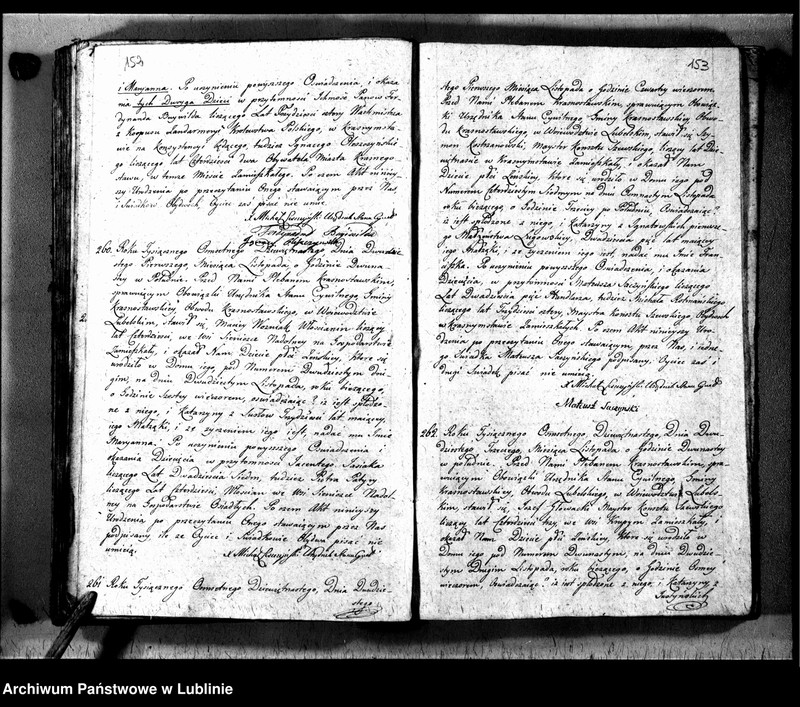 153
i Maryanna. Po uczynieniu powyższego Oświadczenia, i okaza
nia tych Dwoyga Dzieci w przytomności
liczącego Lat Trzydzieści cztery Wachmistrza
z Korpusu Żandarmeryi Królestwa Polskiego, w Krasnymsta
wie na Konsystencyi będącego, tudzież Ignacego
go liczącego lat Czterdzieści dwa Obywatela Miasta Krasnego
stawu, w temże Mieście Zamieszkałego. Po czem Akt niniey
szy Urodzenia po przeczytaniu Onego stawaiącym przez Nas,
i Świadków Oyciec zaś pisać nie umie.
X Michał Urzędnik Stanu Cywil
260. Roku Tysiącznego Osmsetnego Dziewiętnastego, Dnia Dwudzie
stego Pierwszego, Miesiąca Listopada, o Godzinie Dwuna
stey w Południe, Przed Nami Plebanem Krasnostawskim,
sprawuiącym Obowiązki Urzędnika Stanu Cywilnego, Gminy
Krasnostawskiey, Obwodu Krasnostawskiego, w Woiewodztwie
Lubelskim, stawił się, Maciey Woźniak Włościanin liczący
lat Czterdzieści, we Wsi Siennicze Nadolney na Gospodarstwie
Zamieszkały, i okazał Nam Dziecie płci Żeńskiey, które się
urodziło w Domu iego pod Numerem Dwudziestym Dru
gim, na dniu Dwudziestym Listopada, roku bieżącego,
o Godzinie Szóstey wieczorem, oświadczaiąc iż iest spłodzo
ne z niego, i Katarzyny z Trzydzieści lat maiącey,
iego Małżonki, i że życzeniem iego iest, nadać mu Imie
Maryanna. Po uczynieniu powyższego Oświadczenia
okazania Dziecięcia w przytomności Jacentego Sasiaka
liczącego Lat Dwadzieścia Siedm, tudzież Piotra
liczącego Lat Czterdzieści, Włościan we Wsi Siennicze Nadol
ney na Gospodarstwie Osiadłych. Po czem Akt ninieyszy
Urodzenia po przeczytaniu Onego stawaiącym przez Nas
podpisany, ile że Oyciec i Świadkowie Obydwa pisać nie
umieią.
X Michał Urzędnik Stanu Cywil
261 Roku Tysiącznego Osmsetnego Dziewiętnastego, Dnia Dwudzie
stego
153
stego Pierwszego Miesiąca Listopada o Godzinie Czwartey wieczorem,
Przed Nami Plebanem Krasnostawskim, sprawuiącym Obowiąz
ki Urzędnika Stanu Cywilnego, Gminy Krasnostawskiey Obwo
du Krasnostawskiego, w Woiewodztwie Lubelskim, stawił się, Szy
mon Kostrzanowski, Maystr Konsztu Szewskiego, liczący lat Dzie
więtnaście w Krasnymstawie Zamieszkały, i okazał Nam
Dziecie płci Żeńskiey, które się urodziło w Domu iego pod
Numerem Czterdziestym Siedmym na dniu Listopada
roku bieżącego, o Godzinie Trzeciey po Południu, Oświadczaiąc
iż iest spłodzone z niego, i Katarzyny z pierwsze
go Małżeństwa Dwadzieścia pięć lat maiącey
iego Małżonki, i że życzeniem iego iest, nadać mu Imie Fran
ciszka. Po uczynieniu powyższego Oświadczenia, i okazania
Dziecięcia, w przytomności Mateusza Suszyńskiego liczącego
Lat Dwadzieścia pięć tudzież Michała
liczącego lat Trzydzieści cztery Maystra konsztu Szewskiego Obydwoch
w Krasnymstawie Zamieszkałych. Po czem Akt ninieyszy Uro
dzenia po przeczytaniu Onego stawaiącym, przez Nas i iedne
go Świadka Mateusza Suszyńskiego podpisany. Oyciec zaś i
drugi Świadek pisać nie umieią.
X Michał Urzędnik Stanu Cywil
Mateusz Suszynski
262. Roku Tysiącznego Osmsetnego, Dziewiętnastego, Dnia Dwu
dziestego Trzeciego, Miesiąca Listopada, o Godzinie Dwunastey
w południe, Przed Nami Plebanem Krasnostawskim, spra
wuiącym Obowiązki Urzędnika Stanu Cywilnego, Gminy
Krasnostawskiey, Obwodu Lubelskiego, w Woiewodztwie Lubels
kim, stawił się Józef Głowacki Maystr Konsztu Szewskiego
liczący lat Czterdzieści trzy, we Wsi Krupem Zamieszkały, i
okazał Nam Dziecie płci Żeńskiey, które się urodziło w
Domu iego pod Numerem Dwunastym, na dniu Dwudzie
stym Drugim Listopada, roku bieżącego, o Godzinie Osmey
wieczorem, Oświadczaiąc iż iest spłodzone z niego, i Katarzyny z
Archiwum Państwowe w Lublinie